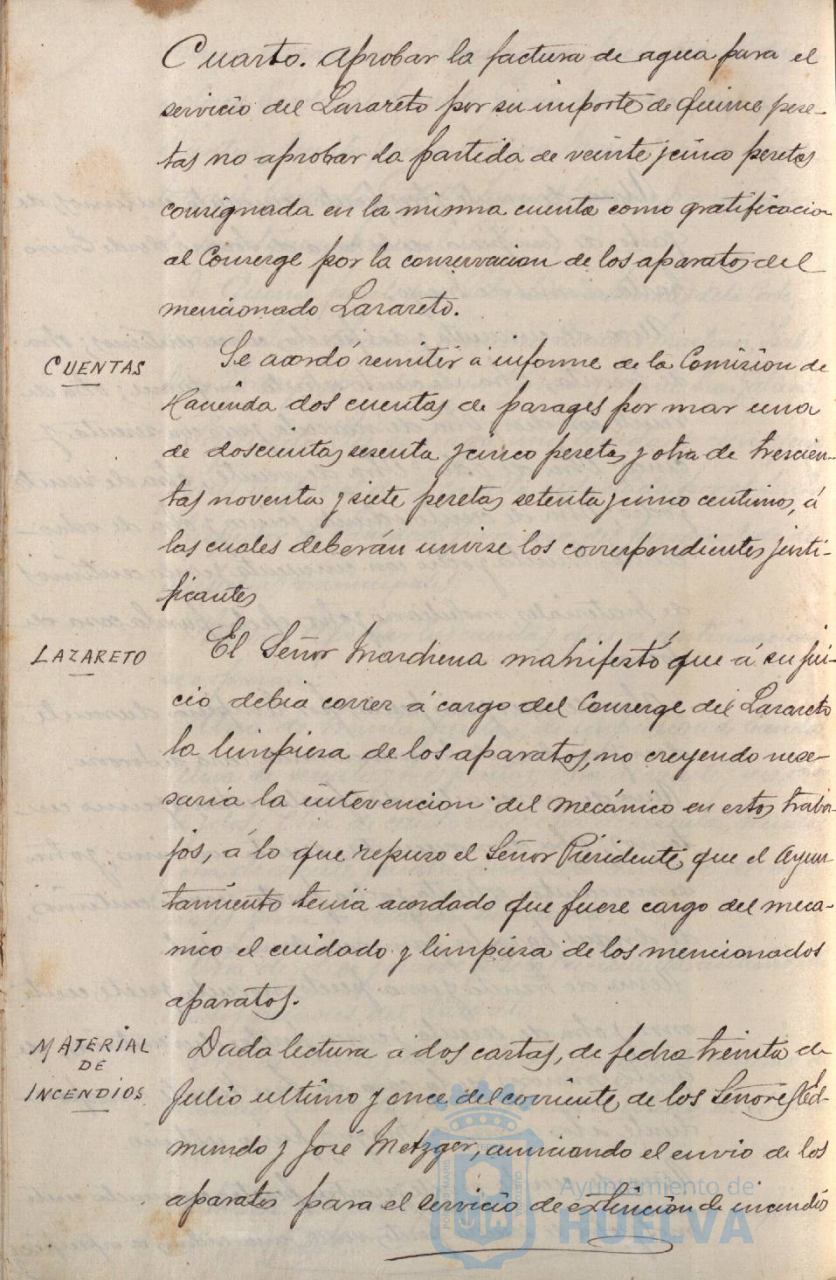 Cuarto. Aprobar la factura de agua para el
servicio del Lazareto por su importe de quince pese-
tas no aprobar la partida de veinte y cinco pesetas
consignada en la misma cuenta como gratificacion
al Conserge por la conservacion de los aparatos del
mencionado Lazareto.
CUENTAS
Se acordó remitir á informe de la Comision de
Hacienda dos cuentas de parages por mar una
de doscientas sesenta y cinco pesetas y otra de trescien-
tas noventa y siete pesetas setenta y cinco centimos, á
las cuales deberán unirse los correspondientes justi-
ficantes
LAZARETO
El Señor Marchena manifestó que á su jui-
cio debia correr á cargo del Conserge del Lazareto
la limpieza de los aparatos, no creyendo nece-
saria la intervencion del mecánico en estos traba-
jos, á lo que repuso el Señor Presidente, que el Ayun-
tamiento tenia acordado que fuere cargo del meca-
nico el cuidado y limpieza de los mencionados
aparatos.
MATERIAL
DE
INCENDIOS
Dada lectura á dos cartas, de fecha treinta de
Julio ultimo y once del corriente, de los Señores Ed-
mundo y José Metzger, anunciando el envio de los
aparatos para el servicio de extincion de incendios
Ayuntamiento de
HUELVA